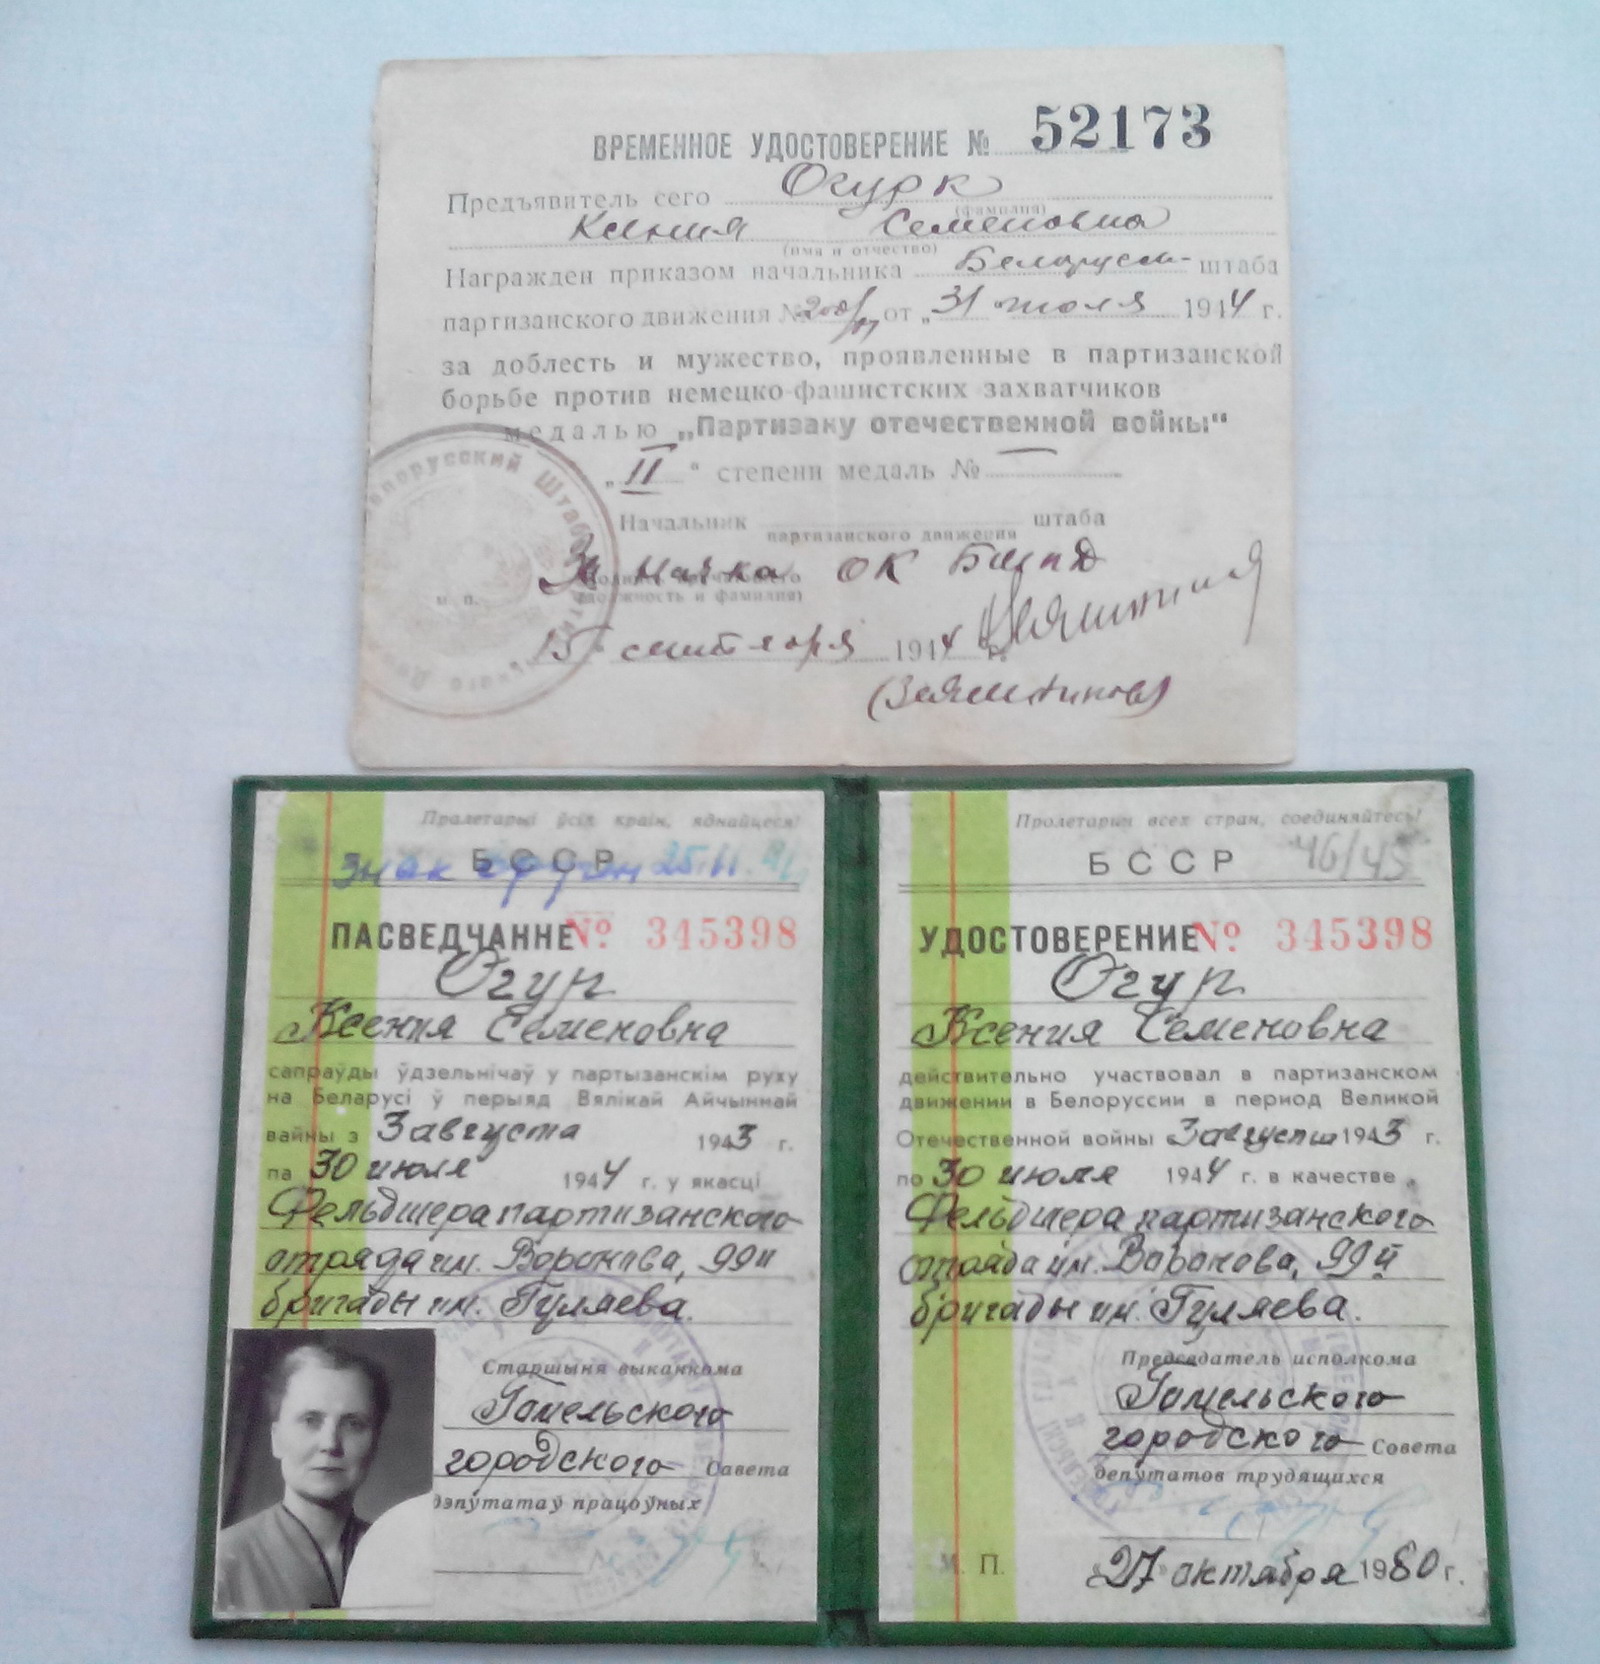 ВРЕМЕННОЕ УДОСТОВЕРЕНИЕ № 52173
Предъявитель сего Огурк
(фамилия)
Ксения Семеновна
(имя и отчество)
Награжден приказом начальника Белорусск- штаба
партизанского движения № от „31" июля 1944 г.
за доблесть и мужество, проявленные в партизанской
борьбе против немецко-фашистских захватчиков
медалью „Партизану отечественной войны“
„II“ степени медаль № —
Начальник штаба
партизанского движения
За нач-ка ОК БШПД
(должность и фамилия)
м. п.
15 сентября 1944 г.
Пралетарыі ўсіх краін, яднайцеся!
БССР
знак вручен 25.11.
ПАСВЕДЧАННЕ № 345398
Огур
Ксения Семеновна
сапраўды ўдзельнічаў у партызанскім руху
на Беларусі ў перыяд Вялікай Айчыннай
вайны з 3 августа 1943 г.
па 30 июля 1944 г. у якасці
Фельдшера партизанского
отряда им. Воронова, 99й
бригады им. Гуляева.
Старшыня выканкома
Гомельского
городского Савета
дэпутатаў працоўных
Пролетарии всех стран, соединяйтесь!
БССР 46/45
УДОСТОВЕРЕНИЕ № 345398
Огур
Ксения Семеновна
действительно участвовал в партизанском
движении в Белоруссии в период Великой
Отечественной войны 3 августа 1943 г.
по 30 июля 1944 г. в качестве
Фельдшера партизанского
отряда им. Воронова, 99й
бригады им. Гуляева.
Председатель исполкома
Гомельского
городского Совета
депутатов трудящихся
М. П. «27» октября 1980 г.